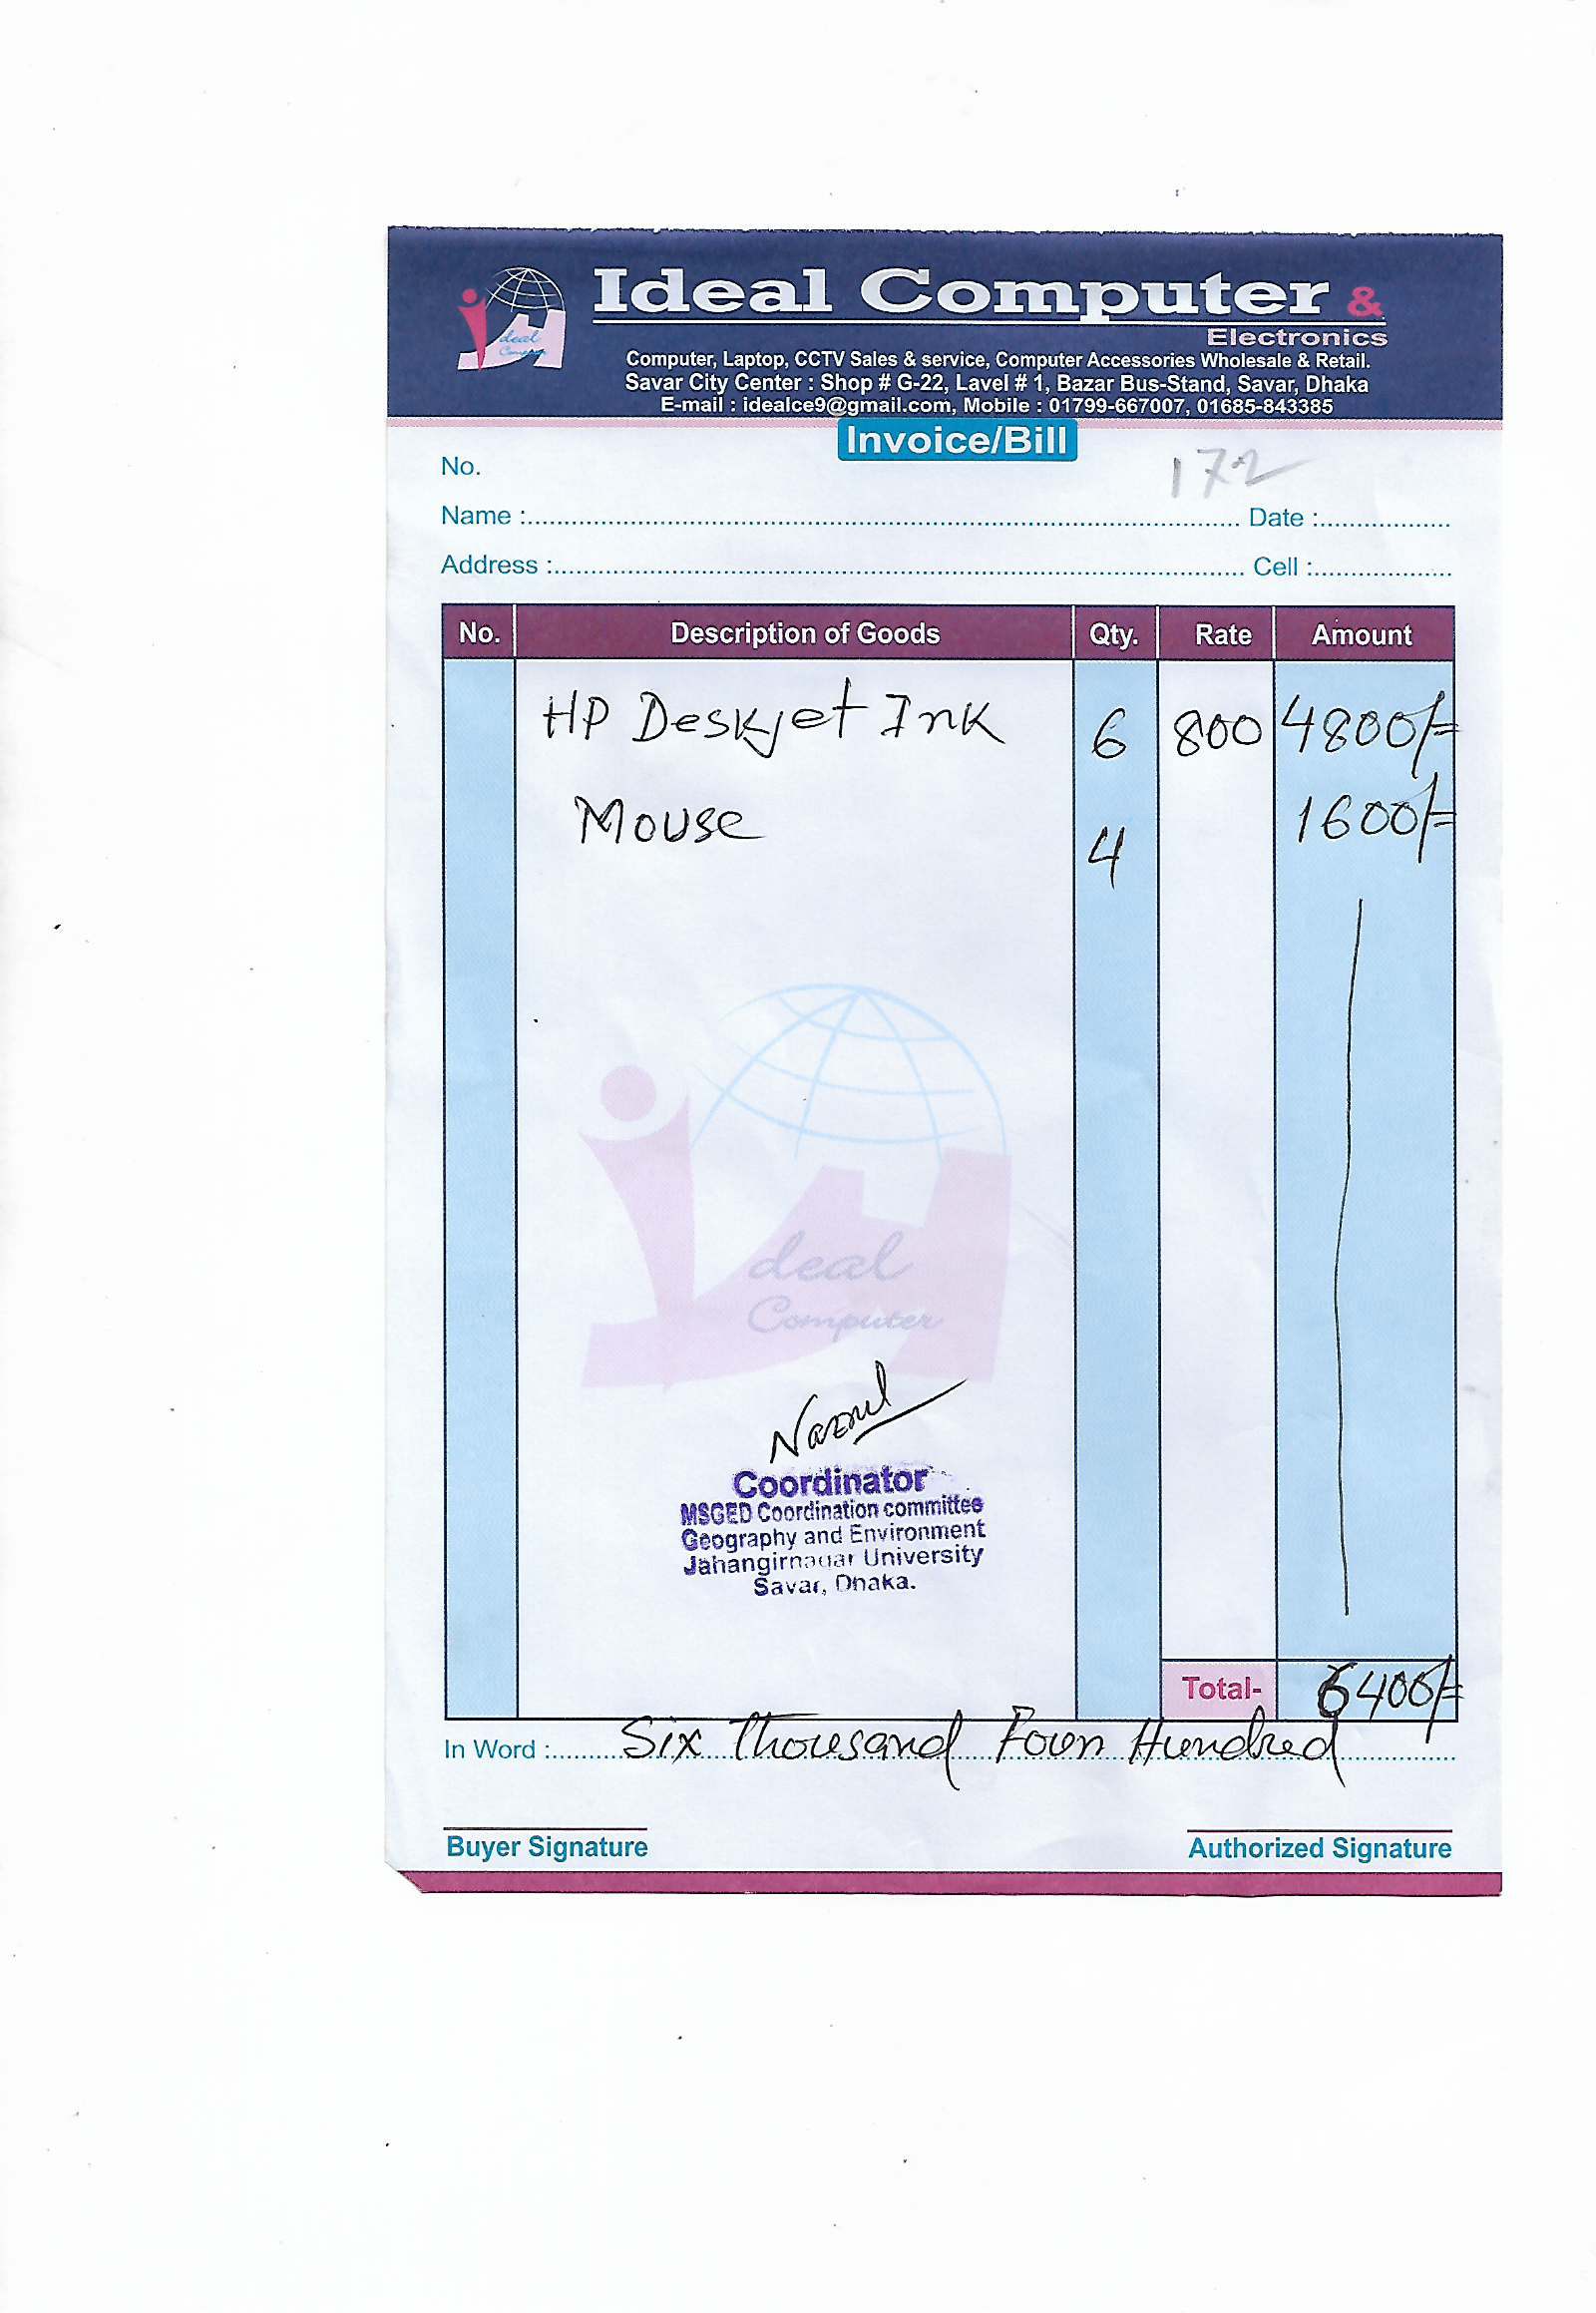 Ideal Computer &
Electronics
deal
Computer
Computer, Laptop, CCTV Sales & service, Computer Accessories Wholesale & Retail.
Savar City Center : Shop # G-22, Lavel # 1, Bazar Bus-Stand, Savar, Dhaka
E-mail : idealce9@gmail.com, Mobile : 01799-667007, 01685-843385
Invoice/Bill
No. 172
Name : Date :
Address : Cell :
No. Description of Goods Qty. Rate Amount
HP Deskjet Ink 6 800 4800/=
Mouse 4 1600/=
deal
Computer
Coordinator
MSGED Coordination committee
Geography and Environment
Jahangirnagar University
Savar, Dhaka.
Total- 6400/=
In Word : Six Thousand Four Hundred
Buyer Signature Authorized Signature